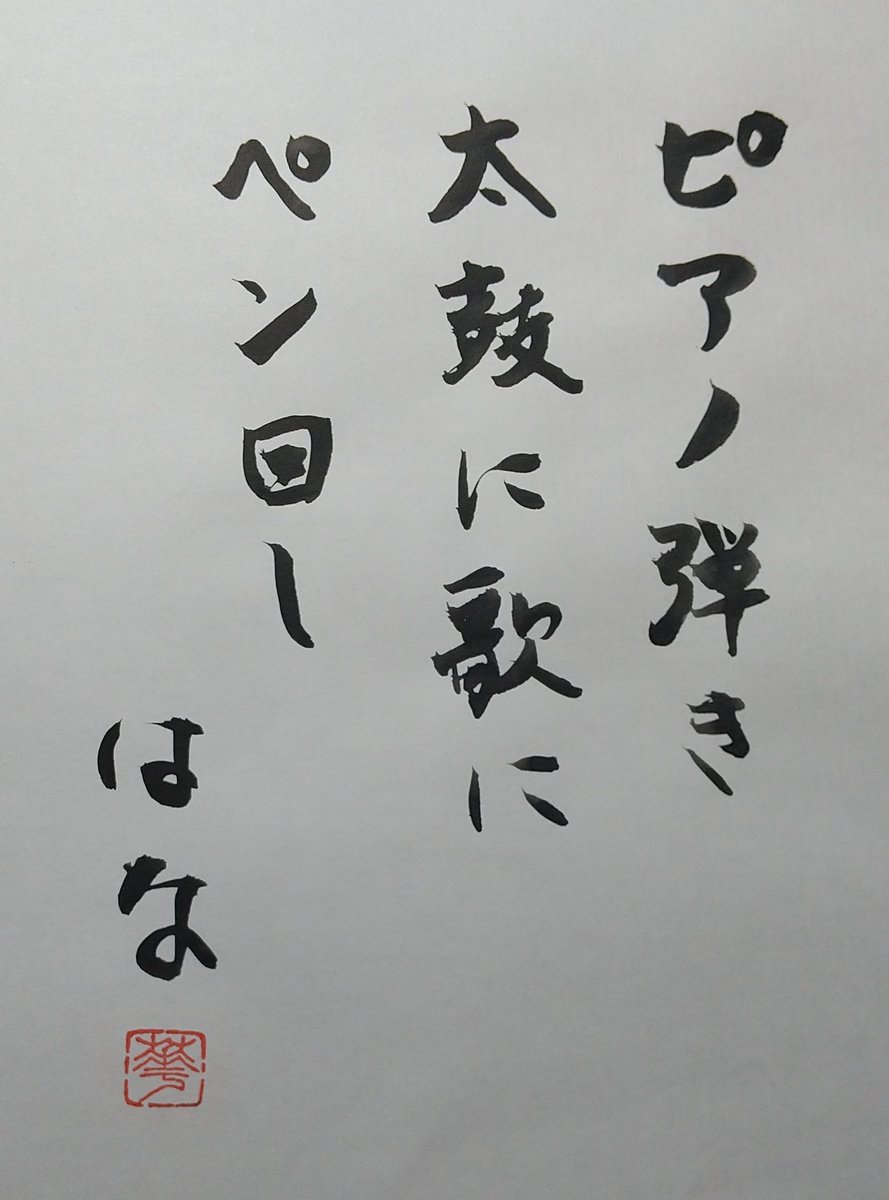 ピアノ弾き
太鼓に歌に
ペン回し
はな
華